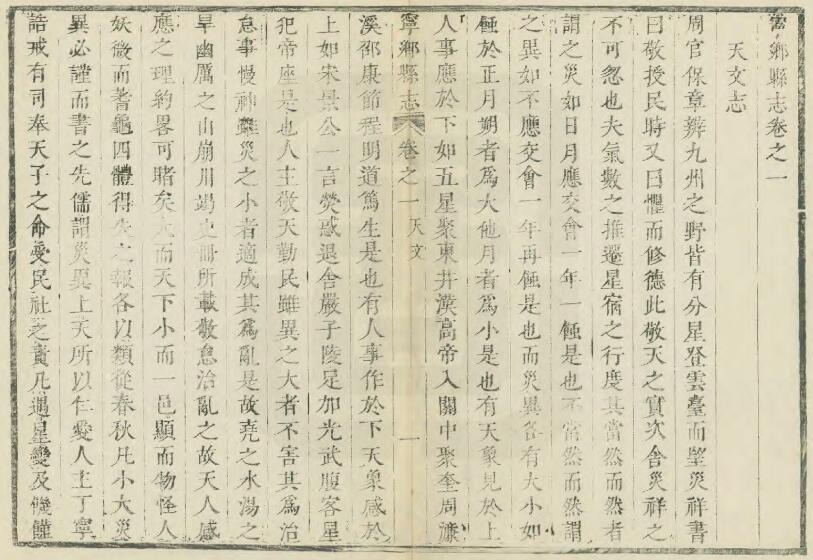 寧鄉縣志卷之一
天文志
周官保章辨九州之野皆有分星登雲臺而望災祥書
曰敬授民時又曰懼而修德此敬天之實次舍災祥之
不可忽也夫氣數之推遷星宿之行度其當然而然者
謂之災如日月應交會一年一蝕是也不當然而然謂
之異如不應交會一年再蝕是也而災異各有大小如
蝕於正月朔者爲大他月者爲小是也有天象見於上
人事應於下如五星聚東井漢高帝入關中聚奎周濂
寧鄉縣志 卷之一 天文 一
溪邵康節程明道篤生是也有人事作於下天象感於
上如宋景公一言熒惑退舍嚴子陵足加光武腹客星
犯帝座是也人主敬天勤民雖異之大者不害其爲治
怠事慢神雖災之小者適成其爲亂是故堯之水湯之
旱幽厲之山崩川竭史冊所載敬怠治亂之故天人感
應之理約畧可睹矣大而天下小而一邑顯而物怪人
妖微而蓍龜四體得失之報各以類從春秋凡小大災
異必謹而書之先儒謂災異上天所以仁愛人主丁寧
誥戒有司奉天子之命受民社之責凡遇星變及饑饉